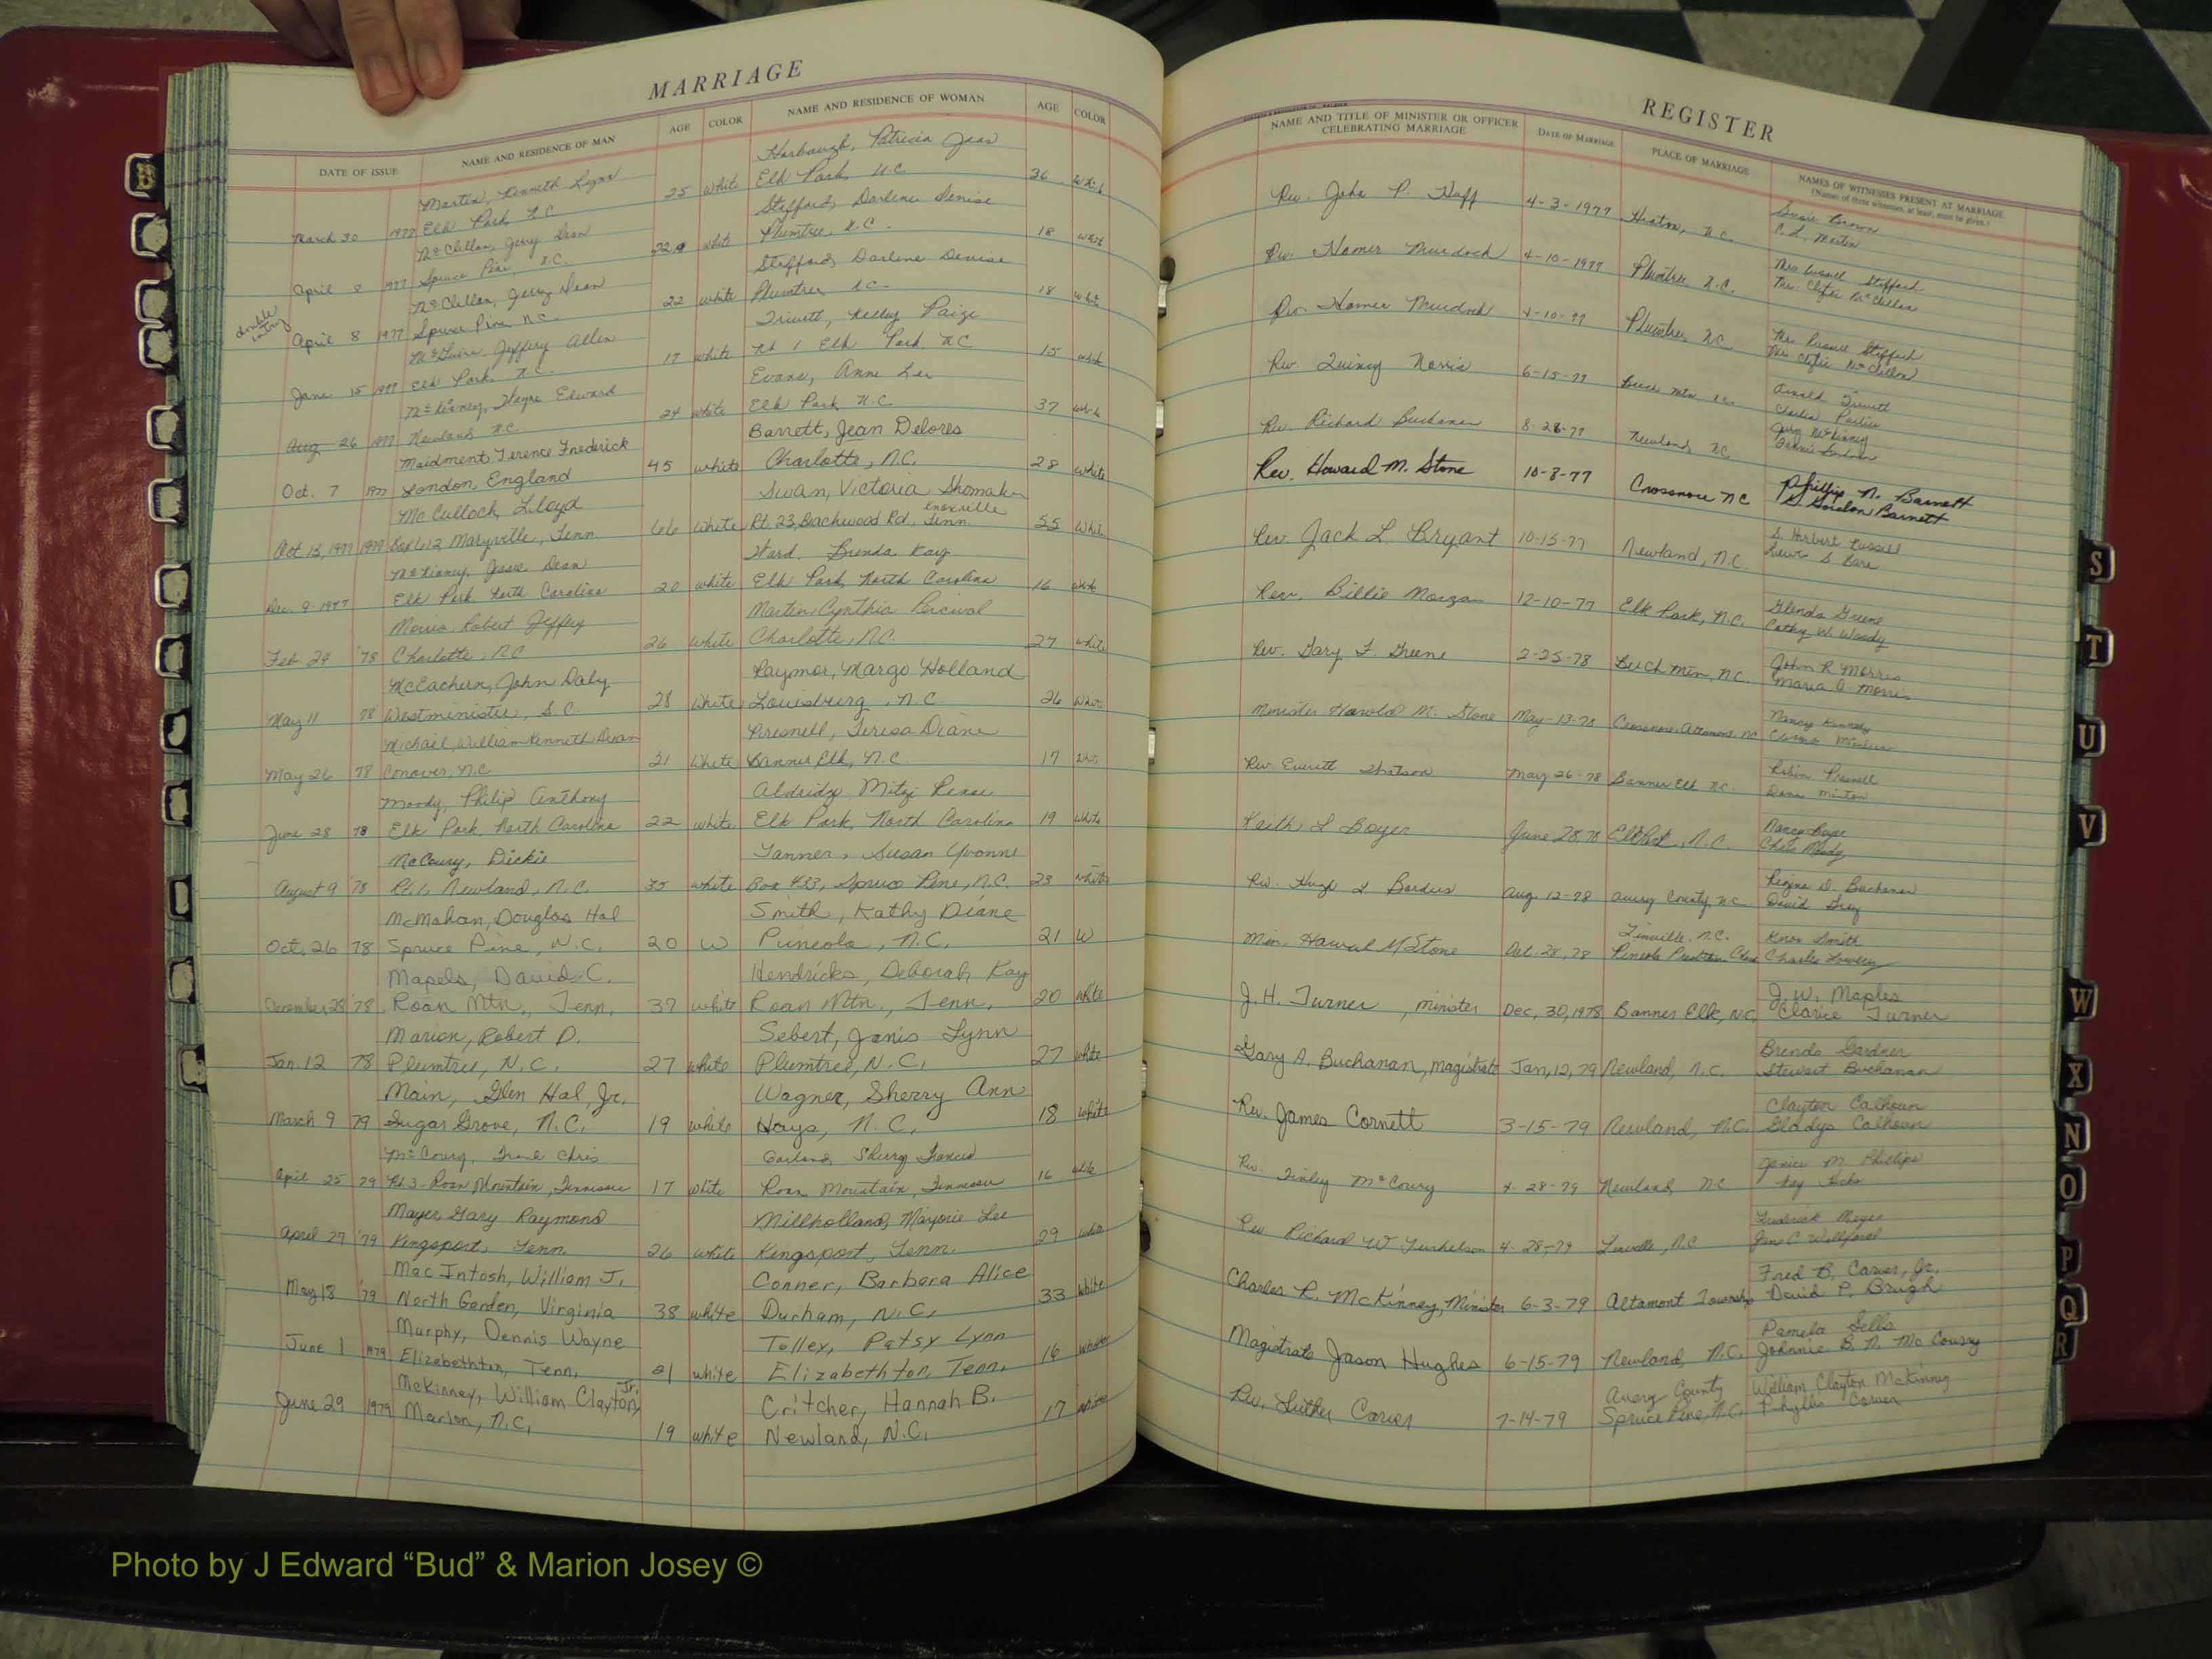 MARRIAGE
DATE OF ISSUE NAME AND RESIDENCE OF MAN AGE COLOR NAME AND RESIDENCE OF WOMAN AGE COLOR
Martin, Kenneth Lynn Harbaugh, Patricia Jean
March 30 1977 Elk Park, N.C. 25 white Elk Park, N.C. 36 White
McClellan, Jerry Dean Stafford, Darlene Denise
April 8 1977 Spruce Pine, N.C. 22 white Plumtree, N.C. 18 white
double entry
McClellan, Jerry Dean Stafford, Darlene Denise
April 8 1977 Spruce Pine N.C. 22 white Plumtree N.C. 18 white
McGuire, Jeffery Allen Trivett, Kelley Paige
June 15 1977 Elk Park, N.C. 17 white Rt 1 Elk Park NC 15 white
McKinney, Wayne Edward Evans, Anne Lee
Aug 26 1977 Newland, N.C. 24 white Elk Park, N.C 37 white
Maidment Terence Frederick Barrett, Jean Delores
Oct. 7 1977 London, England 45 white Charlotte, N.C. 28 white
McCulloch, Lloyd Swan, Victoria Shomaker
Oct 15, 1977 1977 Box 612, Maryville, Tenn. 66 White Rt. 23, Beachwood Rd, Knoxville Tenn. 55 White
McKinney, Jessie Dean Ward, Brenda Kay
Dec. 9 - 1977 Elk Park, North Carolina 20 white Elk Park, North Carolina 16 white
Morris, Robert Jeffrey Martin Cynthia Percival
Feb 24 '78 Charlotte, N.C. 26 White Charlotte, N.C. 27 white
McEachern, John Daly Raymor, Margo Holland
May 11 78 Westminister, S.C. 28 White Louisburg, N.C. 26 White
Michail William Kenneth Dean Presnell, Teresa Diane
May 26 78 Conover, N.C. 21 White Banner Elk, N.C. 17
Moody, Philip Anthony Aldridge Mitzi Renee
June 28 78 Elk Park, North Carolina 22 white Elk Park, North Carolina 19 White
McCoury, Dickie Tanner, Susan Yvonne
August 9 '78 Rt. 1, Newland, N.C. 35 white Box 433, Spruce Pine, N.C. 23 white
McMahan, Douglas Hal Smith, Kathy Diane
Oct. 26 78 Spruce Pine, N.C. 20 W Pineola, N.C. 21 W
Mapels, David C. Hendricks, Deborah Kay
December 28 '78 Roan Mtn, Tenn. 37 white Roan Mtn, Tenn. 20 White
Marion, Robert D. Sebert, Janis Lynn
Jan. 12 78 Plumtree, N.C. 27 white Plumtree, N.C. 27 white
Main, Glen Hal, Jr. Wagner, Sherry Ann
March 9 79 Sugar Grove, N.C. 19 white Hays, N.C. 18 white
McCoury, Chris Garland
April 25 79 Rt 3 - Roan Mountain, Tennessee 17 white Roan Mountain, Tennessee 16 white
Mayer, Gary Raymond Millholland, Marjorie Lee
April 27 '79 Kingsport, Tenn. 26 white Kingsport, Tenn. 29 white
MacIntosh, William J. Conner, Barbara Alice
May 18 '79 North Garden, Virginia 38 white Durham, N.C. 33 White
Murphy, Dennis Wayne Tolley, Patsy Lynn
June 1 1979 Elizabethton, Tenn. 21 white Elizabethton, Tenn. 16 white
McKinney, William Clayton, Jr. Critcher, Hannah B.
June 29 1979 Marion, N.C. 19 white Newland, N.C. 17 white
REGISTER
NAME AND TITLE OF MINISTER OR OFFICER CELEBRATING MARRIAGE DATE OF MARRIAGE PLACE OF MARRIAGE NAMES OF WITNESSES PRESENT AT MARRIAGE
(Names of three witnesses, at least, must be given.)
Susie Brown
Rev. John P. Huff 4-3-1977 Heaton, N.C. C. L. Martin
Mrs Russell Stafford
Rev. Homer Murdock 4-10-1977 Plumtree, N.C. Mrs. Clytie McClellan
Mrs Russell Stafford
Rev Homer Murdock 4-10-77 Plumtree, NC Mrs Clytie McClellan
Arnold Trivett
Rev. Quincy Norris 6-15-77 Charlie
Jerry McKinney
Rev. Richard Buchanan 8-28-77 Newland, NC
Phillip N. Barnett
Rev. Howard M. Stone 10-8-77 Crossnore NC S. Gordon Barnett
S. Herbert Russell
Rev Jack L. Bryant 10-15-77 Newland, N.C. S Bare
Glenda Greene
Rev. Billie Morgan 12-10-77 Elk Park, N.C. Cathy W. Woody
John R Morris
Rev. Gary F. Greene 2-25-78 Beech Mtn, N.C. Maria A. Morris
Nancy Kennedy
Minister Harold M. Stone May-13-78 Crossnore, Altamont, NC
Robin Presnell
Rev Everett Watson May 26-78 Banner Elk N.C. Dana Minton
Nancy Boyer
Keith L Boyer June 28, 78 Elk Park, N.C. Chris Moody
Regina D. Buchanan
Rev. Hugh L. Aug. 12-78 Avery County, N.C. David Gray
Linville, N.C. Knox Smith
Min. M Stone Oct. 28, 78 Pineola Charles Lowery
J. W. Maples
J. H. Turner, minister Dec, 30, 1978 Banner Elk, N.C. Clarice Turner
Brenda Gardner
Gary A. Buchanan, Magistrate Jan, 12, 79 Newland, N.C. Stewart Buchanan
Clayton Calhoun
Rev. James Cornett 3-15-79 Newland, N.C. Gladys Calhoun
Janice M Phillips
Rev. Finley McCoury 4-28-79 Newland, NC Kay Hicks
Frederick Mayer
Rev Richard W Turkelson 4-28-79 Linville, N.C
Fred B. Carver, Jr.
Charles R. McKinney, Minister 6-3-79 Altamont Township David P. Brugh
Pamela Sells
Magistrate Jason Hughes 6-15-79 Newland, N.C. Johnnie B. N. McCoury
Avery County William Clayton McKinney
Rev. Luther Carver 7-14-79 Spruce Pine, N.C. Phyllis Carver
B
S
T
U
V
W
X
N
O
P
Q
R
Photo by J Edward “Bud” & Marion Josey ©